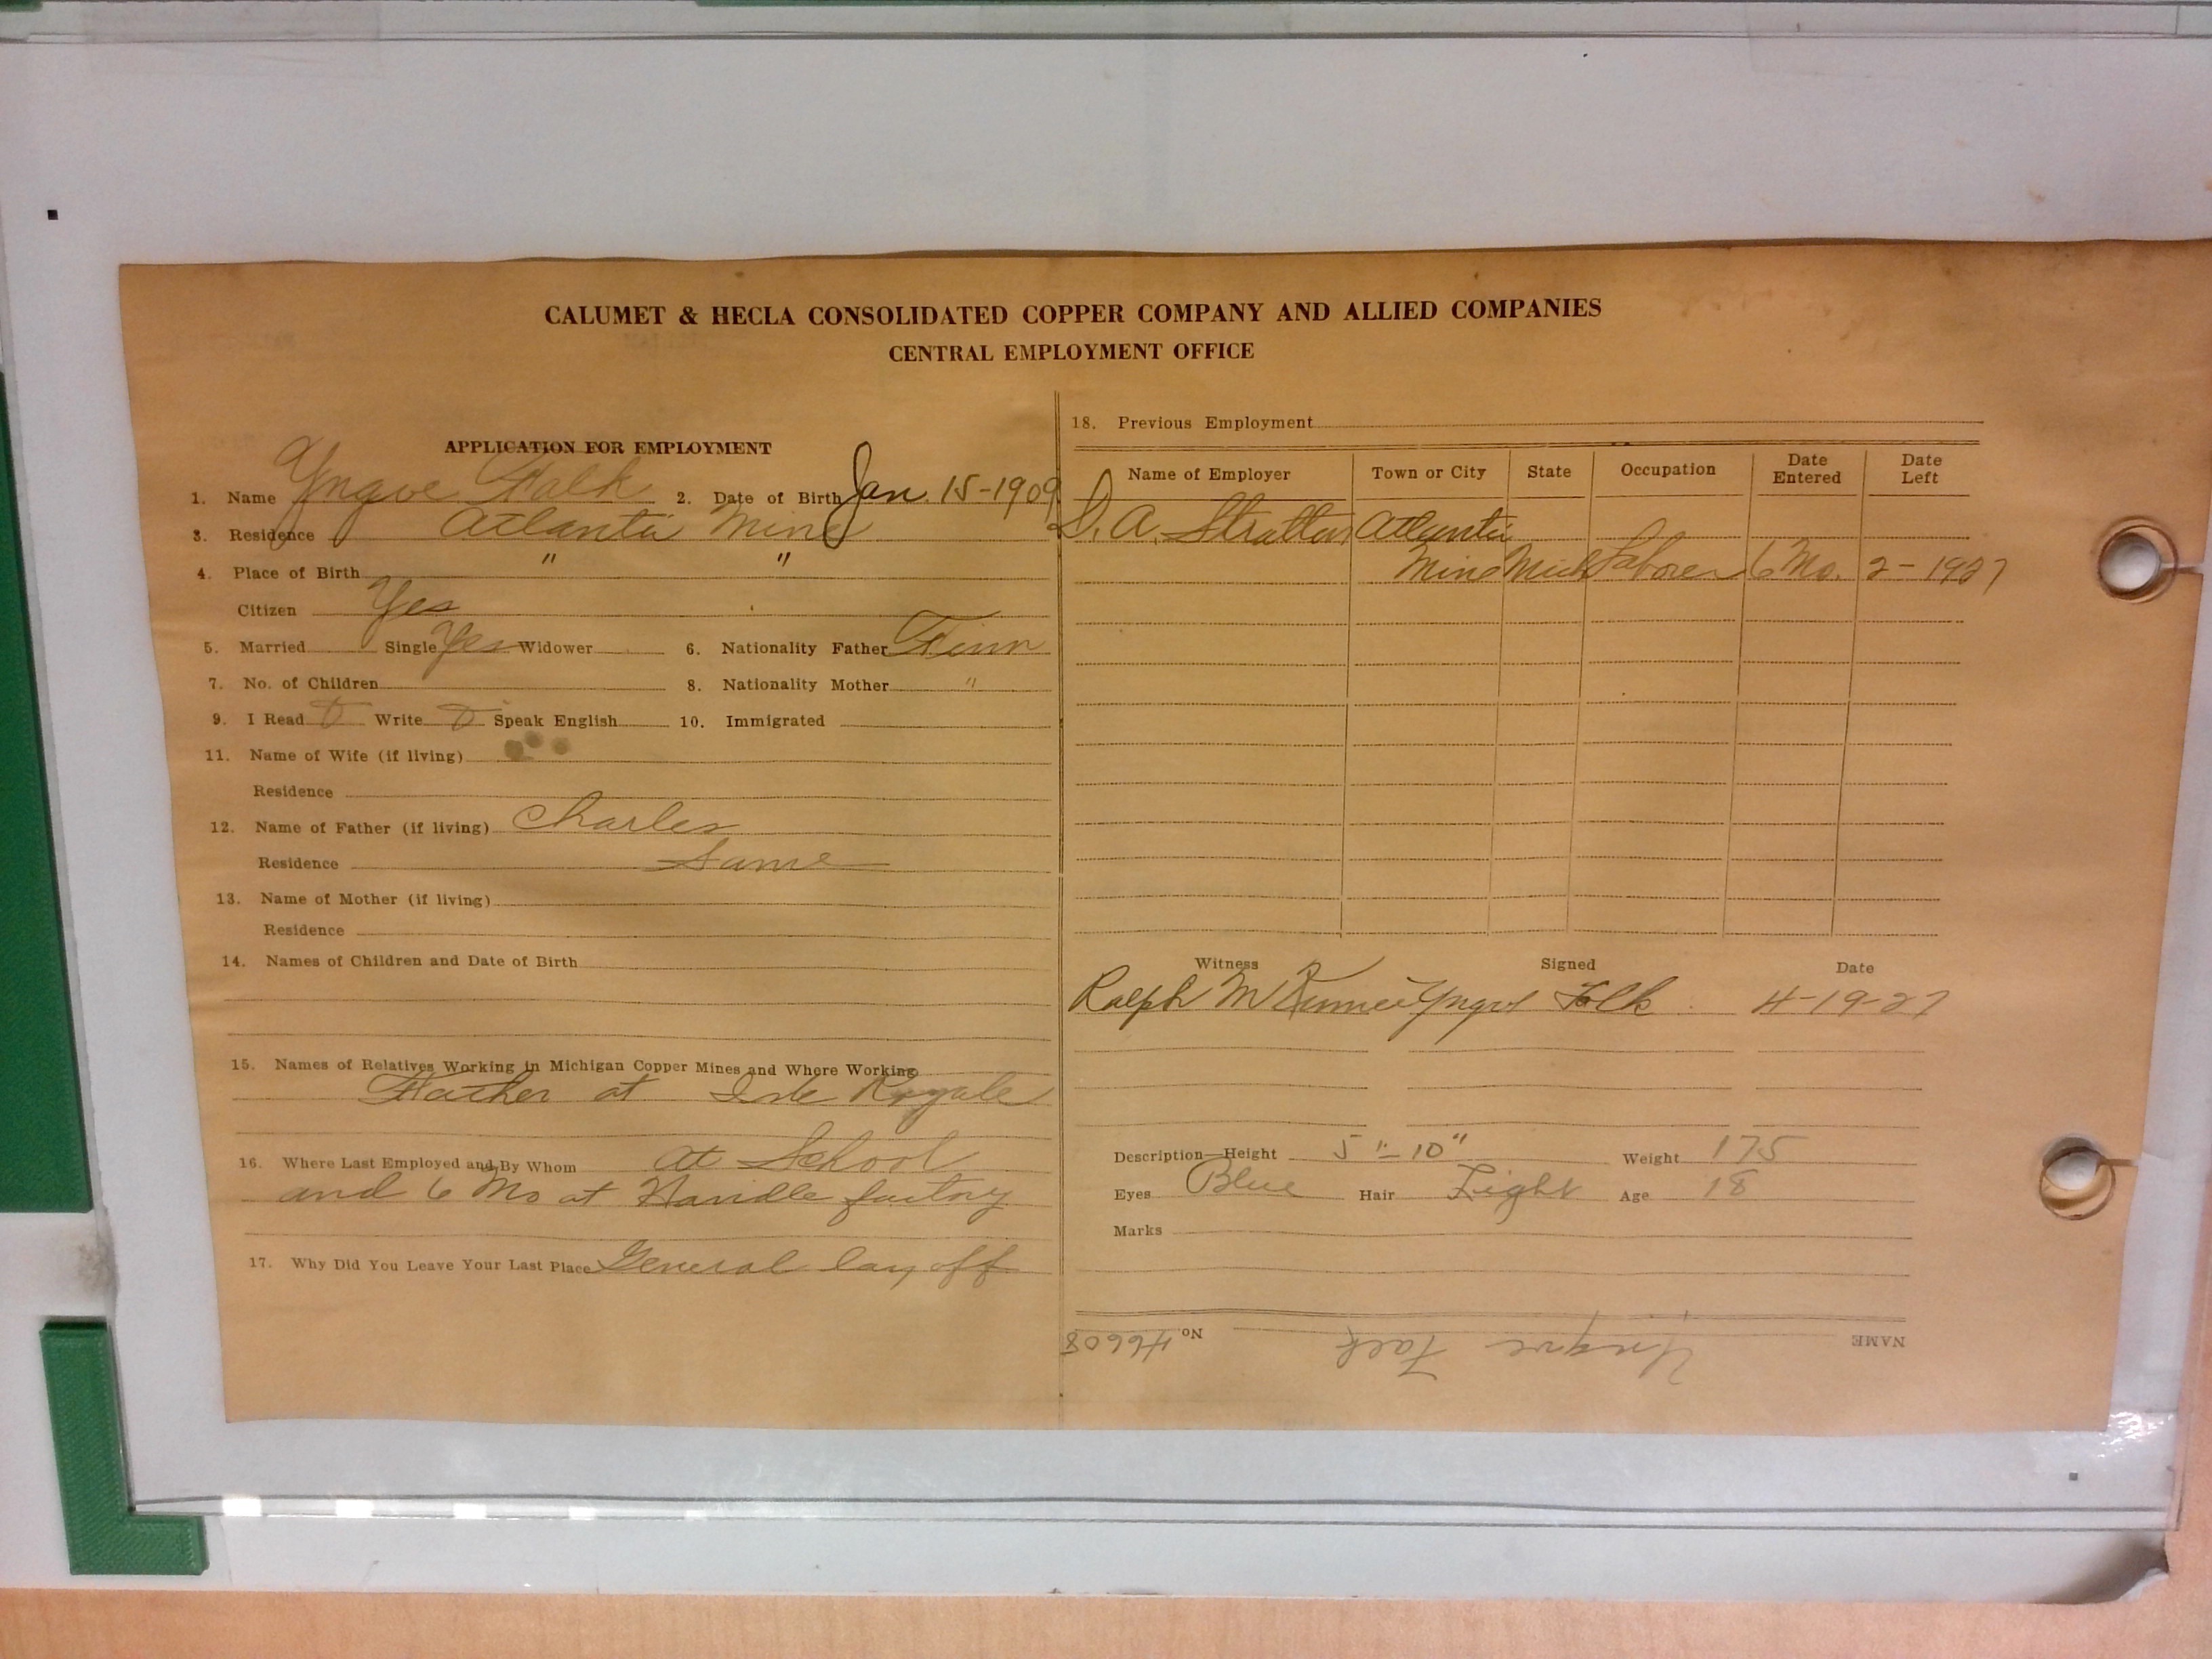 CALUMET & HECLA CONSOLIDATED COPPER COMPANY AND ALLIED COMPANIES
CENTRAL EMPLOYMENT OFFICE
APPLICATION FOR EMPLOYMENT
1. Name Yngve Falk 2. Date of Birth Jan. 15-1909
3. Residence Atlantic Mine
4. Place of Birth " "
Citizen Yes
5. Married Single Yes Widower 6. Nationality Father Finn
7. No. of Children 8. Nationality Mother "
9. I Read Write Speak English 10. Immigrated
11. Name of Wife (if living)
Residence
12. Name of Father (if living) Charles
Residence Same
13. Name of Mother (if living)
Residence
14. Names of Children and Date of Birth
15. Names of Relatives Working in Michigan Copper Mines and Where Working
Father at Isle Royale
16. Where Last Employed and By Whom at School
and 6 Mo at Handle factory
17. Why Did You Leave Your Last Place General lay off
18. Previous Employment
Name of Employer Town or City State Occupation Date Entered Date Left
S. A. Stratton Atlantic
Mine Mich Laborer 6 Mo. 2-1927
Witness Signed Date
Ralph Yngve Falk 4-19-27
Description—Height 5"-10" Weight 175
Eyes Blue Hair Light Age 18
Marks
NAME Yngve Falk No. 46608